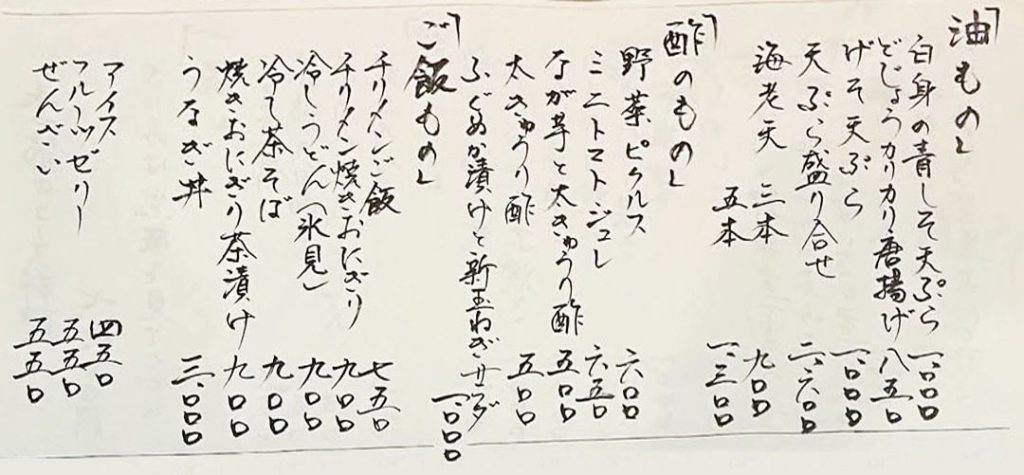 「油もの」
白身の青しそ天ぷら 一、〇〇〇
どじょうカリカリ唐揚げ 八五〇
げそ天ぷら 一、〇〇〇
天ぷら盛り合せ 二、六〇〇
海老天 三本 九〇〇
五本 一、三〇〇
「酢のもの」
野菜ピクルス 六〇〇
ミニトマトジュレ 六五〇
なが芋と太きゅうり酢 五〇〇
太きゅうり酢 五〇〇
ふぐぬか漬けと新玉ねぎサラダ 一、〇〇〇
「ご飯もの」
チリメンご飯 七五〇
チリメン焼きおにぎり 九〇〇
冷しうどん(氷見) 九〇〇
冷し茶そば 九〇〇
焼きおにぎり茶漬け 九〇〇
うなぎ丼 三、〇〇〇
アイス 四五〇
フルーツゼリー 五五〇
ぜんざい 五五〇